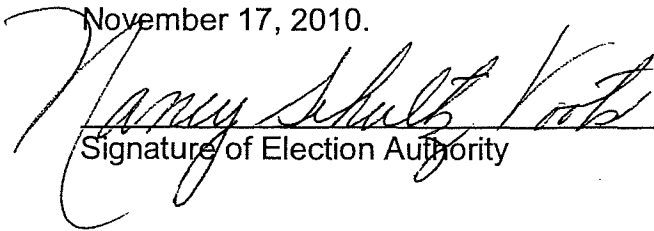 November 17, 2010.
Nancy Schultz Voots
Signature of Election Authority